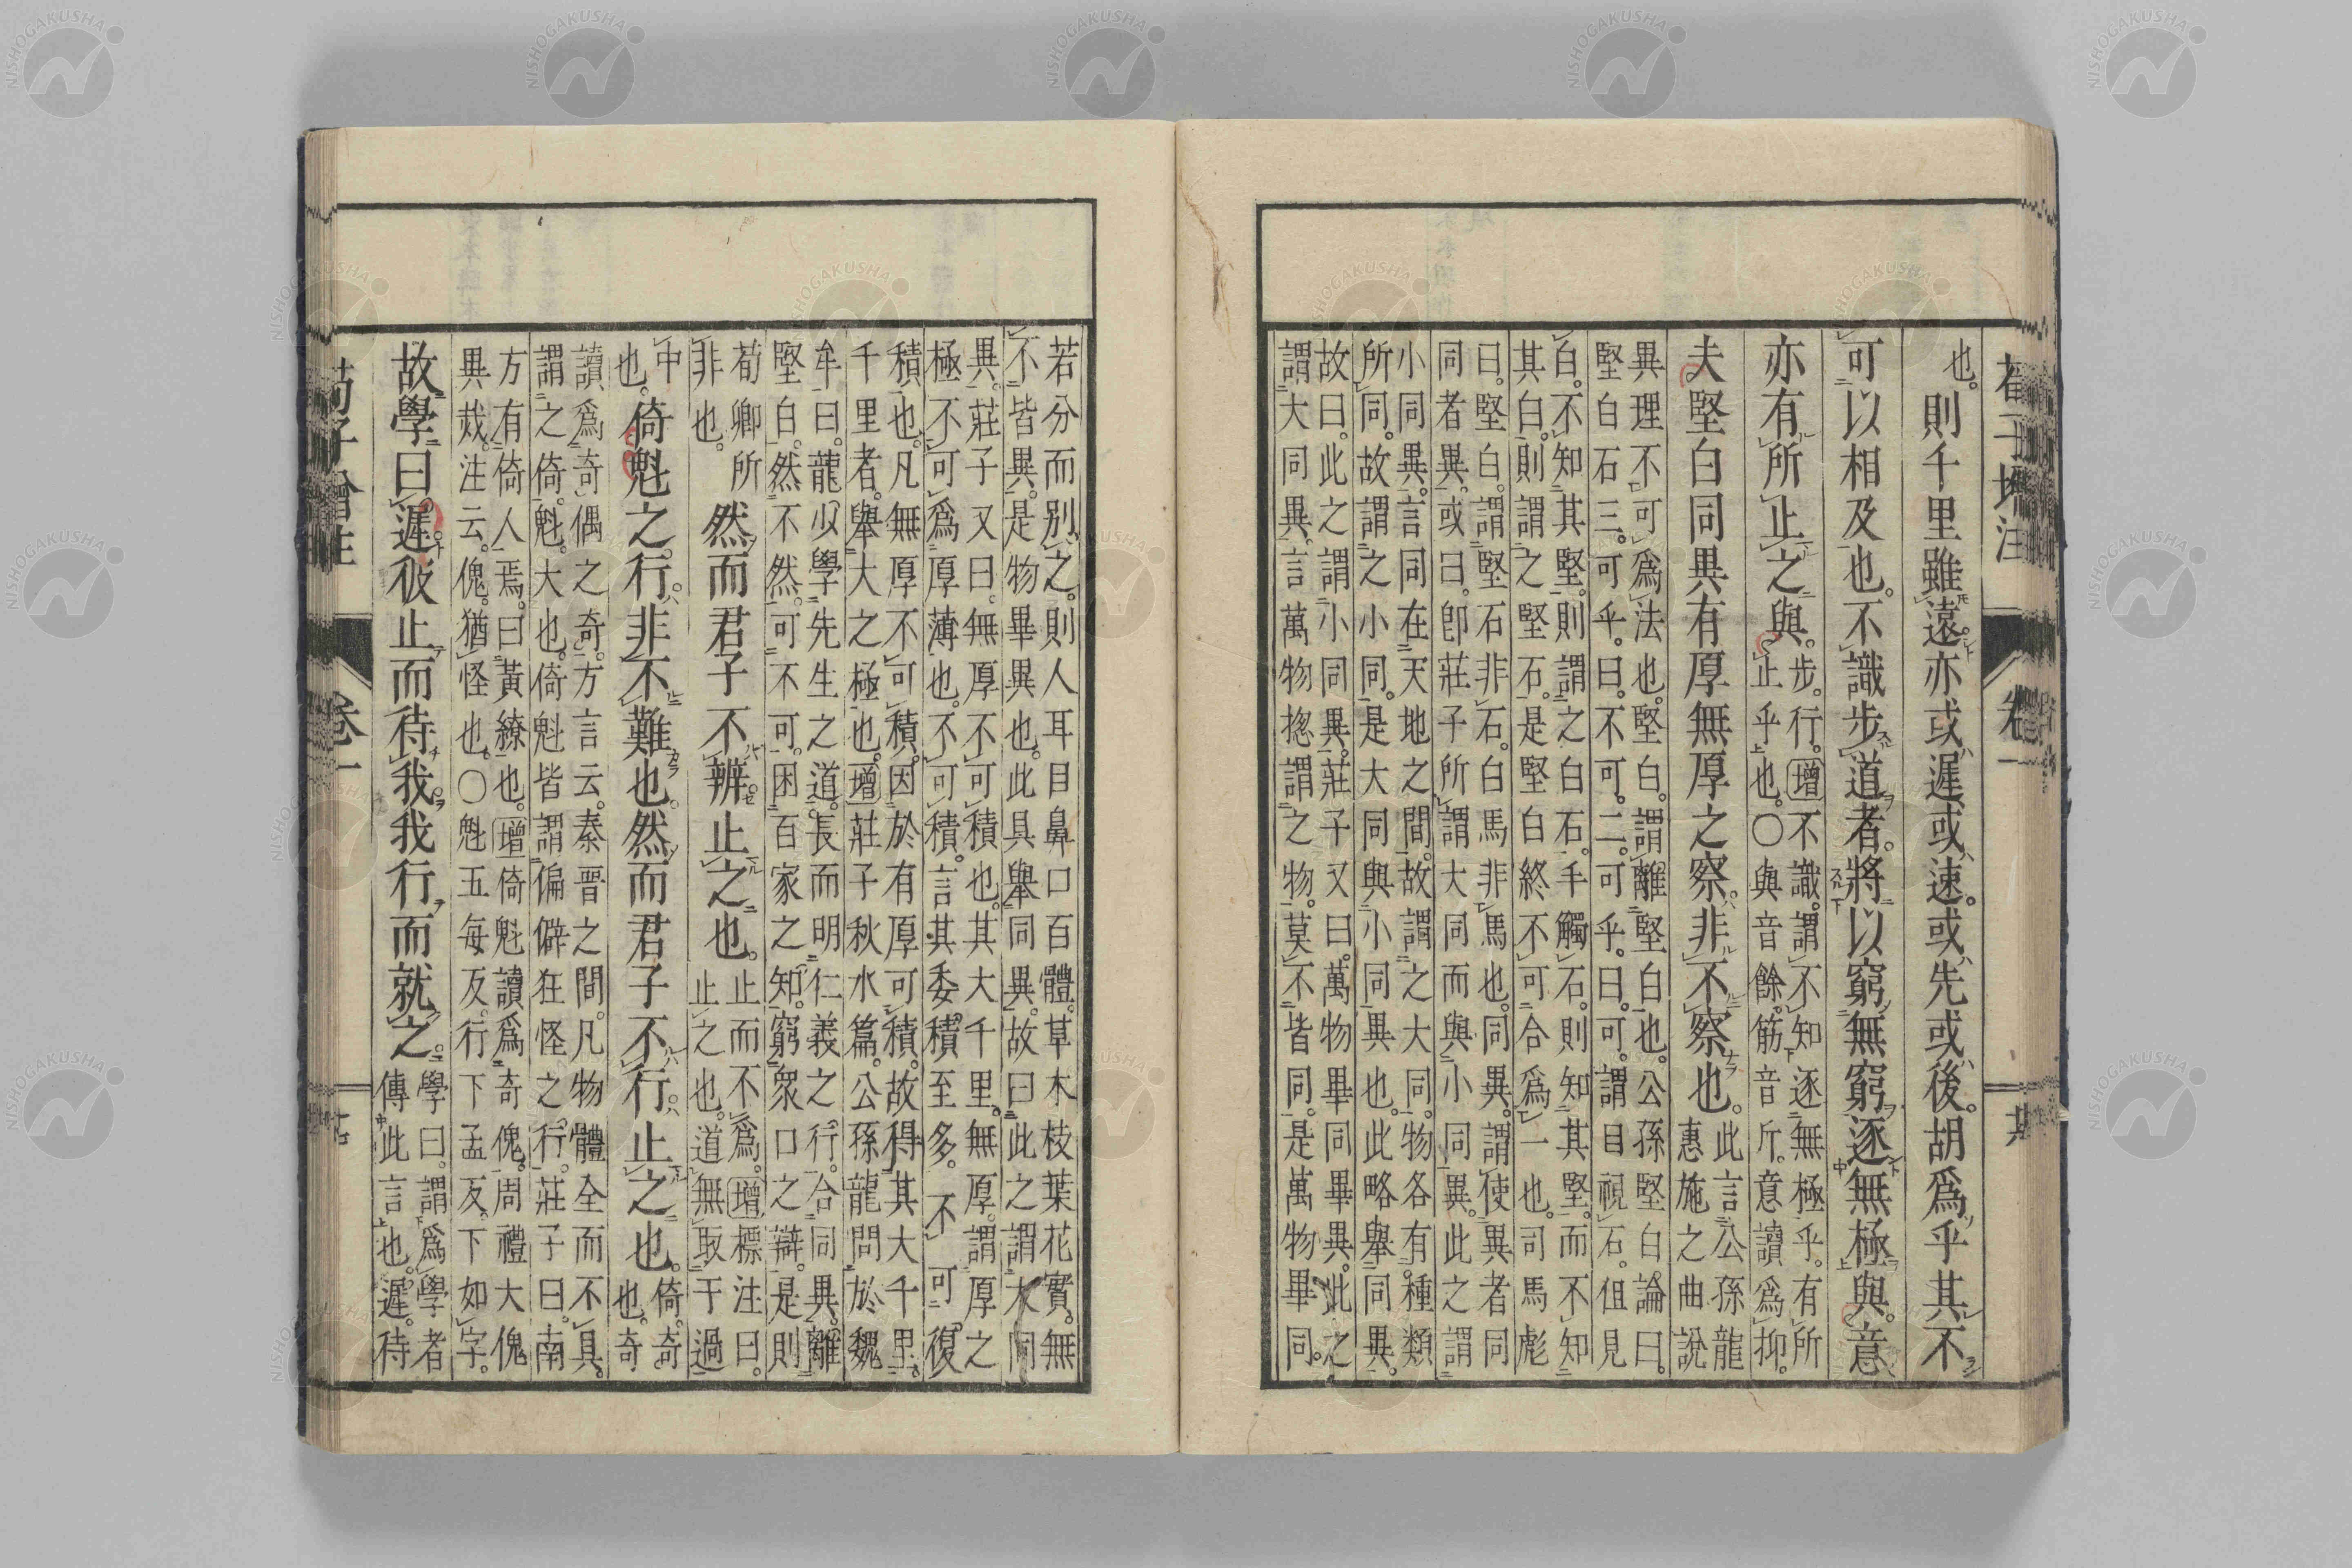 也。則千里雖遠。亦或遲或速。或先或後。胡爲乎其不
可以相及也。不識步道者。將以窮無窮逐無極與。意
亦有所止之與。
步。行。增不識。謂不知逐無極乎。有所
止乎也。○與音餘。筋音斤。意讀爲抑。
夫堅白同異有厚無厚之察。非不察也。
此言公孫龍
惠施之曲說
異理不可爲法也。堅白。謂離堅白也。公孫堅白論曰。
堅白石三。可乎。曰。不可。二。可乎。曰。可。謂目視石。但見
白。不知其堅。則謂之白石。手觸石。則知其堅。而不知
其白。則謂之堅石。是堅白終不可合爲一也。司馬彪
曰。堅白。謂堅石非石。白馬非馬也。同異。謂使異者同
同者異。或曰。卽莊子所謂大同而與小同異。此之謂
小同異。言同在天地之間。故謂之大同。物各有種類
所同。故謂之小同。是大同與小同異也。此略舉同異。
故曰。此之謂小同異。莊子又曰。萬物畢同畢異。此之
謂大同異。言萬物揔謂之物。莫不皆同。是萬物畢同。
若分而別之。則人耳目鼻口百體。草木枝葉花實。無
不皆異。是物畢異也。此具舉同異。故曰此之謂大同
異。莊子又曰。無厚不可積也。其大千里。無厚。謂厚之
極不可爲厚薄也。不可積。言其委積至多。不可復
積也。凡無厚不可積。因於有厚可積。故得其大千里。
千里者。舉大之極也。增莊子秋水篇。公孫龍問於魏
牟曰。龍少學先生之道。長而明仁義之行。合同異。離
堅白。然不然。可不可。困百家之知。窮衆口之辯。是則
荀卿所
非也。
然而君子不辨。止之也。
止而不爲。增標注曰。
止之也。道無取于過
中
也。
倚魁之行。非不難也。然而君子不行。止之也。
倚。奇
也。奇
讀爲奇偶之奇。方言云。秦晉之間。凡物體全而不具。
謂之倚。魁。大也。倚魁皆謂偏僻狂怪之行。莊子曰。南
方有倚人焉。曰黃繚也。增倚魁讀爲奇傀。周禮大傀
異烖。注云。傀。猶怪也。○魁五每反。行下孟反。下如字。
故學曰。遲。彼止而待我。我行而就之。
學曰。謂爲學者
傳此言也。遲。待
卷一
NISHOGAKUSHA